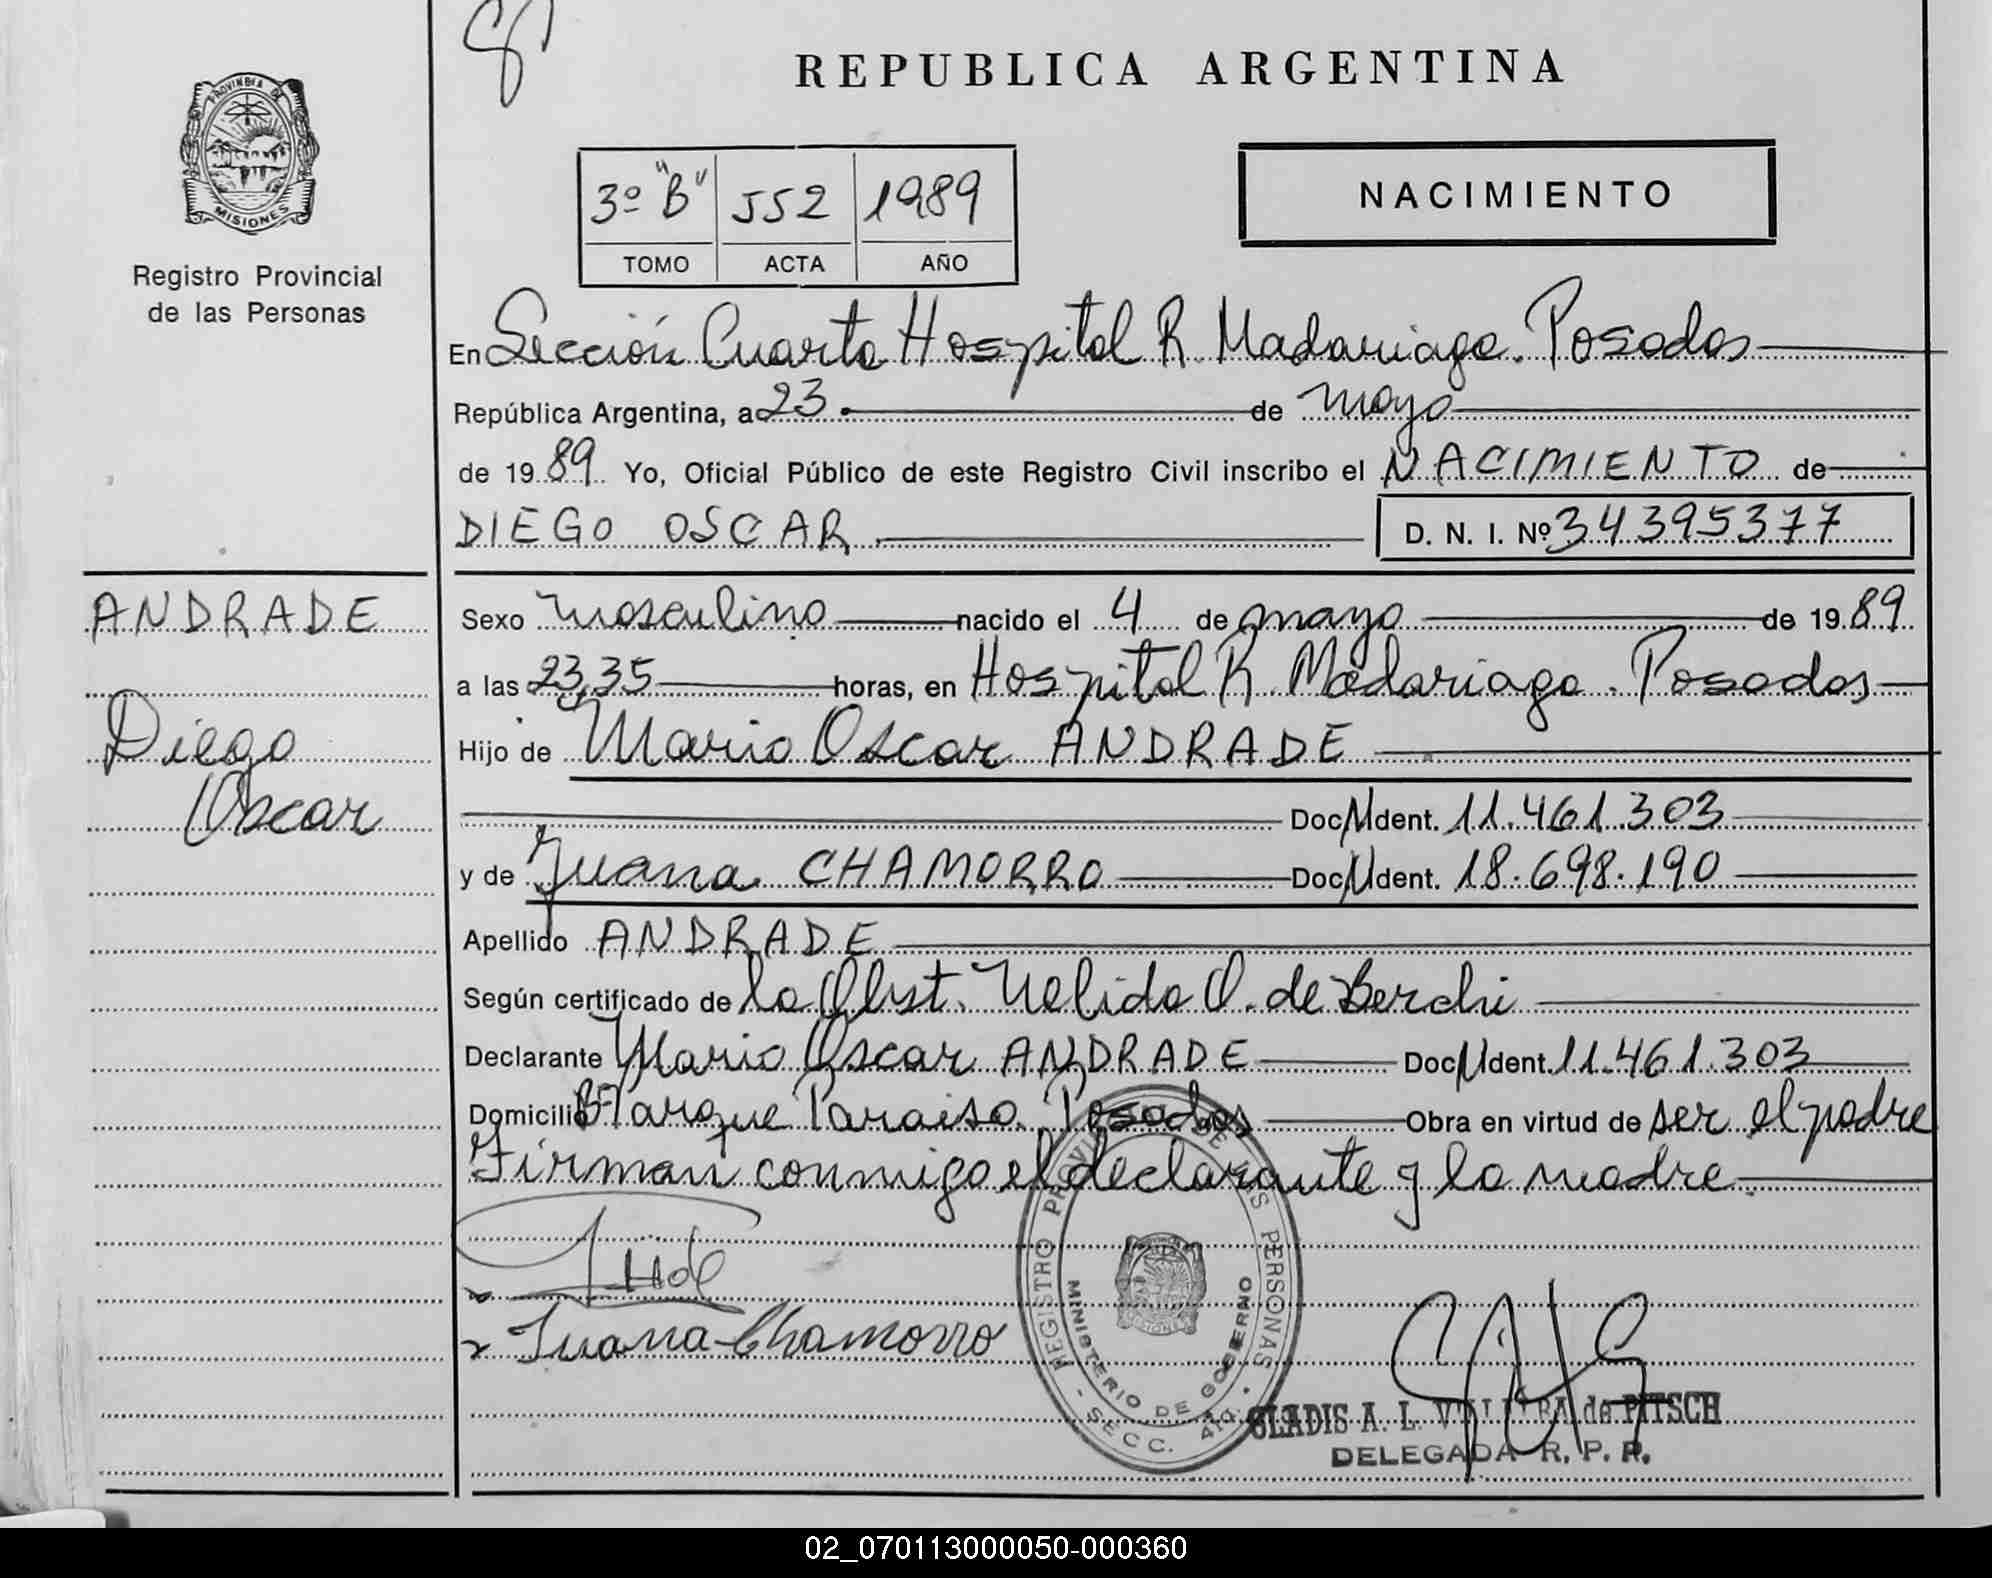 REPUBLICA ARGENTINA
PROVINCIA DE
MISIONES
Registro Provincial
de las Personas
3º "B" 552 1989
TOMO ACTA AÑO
NACIMIENTO
En Sección Cuarta Hospital R. Madariaga. Posadas
República Argentina, a 23 de mayo
de 1989 Yo, Oficial Público de este Registro Civil inscribo el NACIMIENTO de
DIEGO OSCAR D. N. I. Nº 34395377
ANDRADE
Diego
Oscar
Sexo masculino nacido el 4 de mayo de 1989
a las 23,35 horas, en Hospital R. Madariaga. Posadas
Hijo de Mario Oscar ANDRADE
Doc. N Ident. 11.461.303
y de Juana CHAMORRO Doc. N Ident. 18.698.190
Apellido ANDRADE
Según certificado de la Obst. Nelida O. de Berchi
Declarante Mario Oscar ANDRADE Doc. N Ident. 11.461.303
Domicilio Bº Parque Paraiso. Posadas Obra en virtud de ser el padre
Firman conmigo el declarante y la madre
Juana Chamorro
REGISTRO PROVINCIAL DE LAS PERSONAS
MINISTERIO DE GOBIERNO
SECC. 4ta.
GLADIS A. L. de PITSCH
DELEGADA R. P. P.
02_070113000050-000360